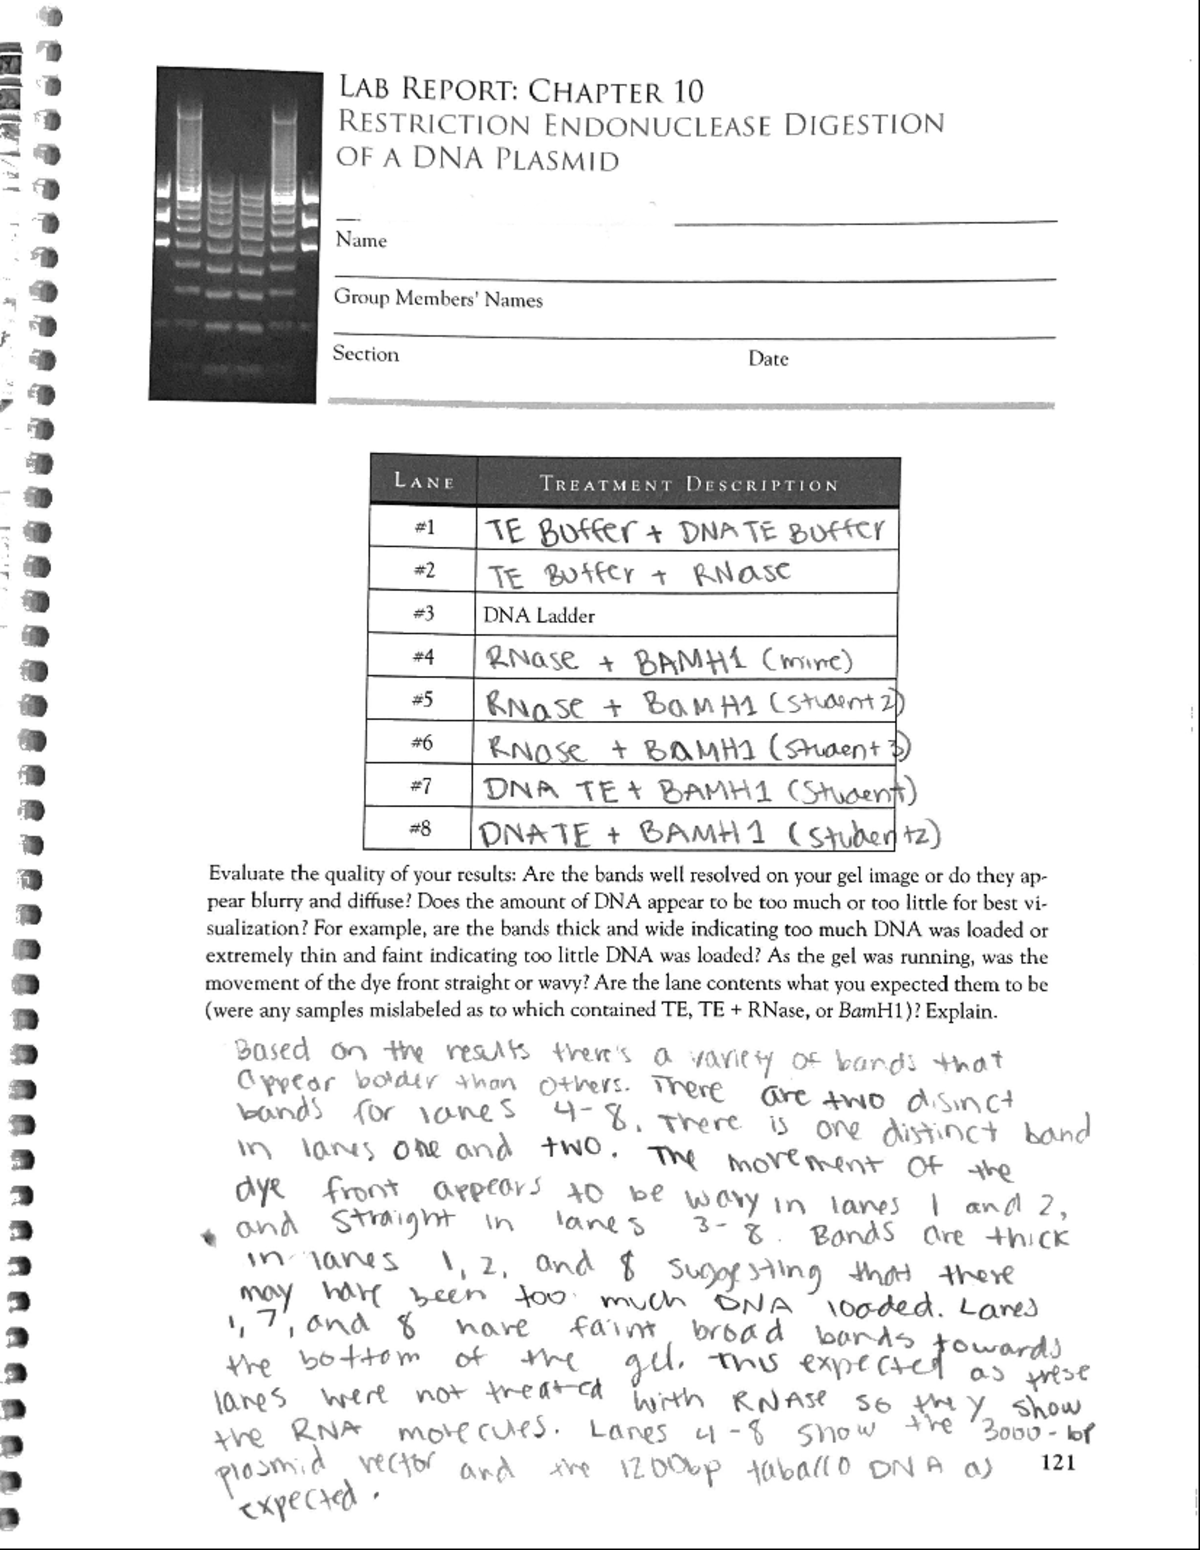 LAB REPORT: CHAPTER 10
RESTRICTION ENDONUCLEASE DIGESTION
OF A DNA PLASMID
Name
Group Members' Names
Section Date
LANE TREATMENT DESCRIPTION
#1 TE Buffer + DNA TE Buffer
#2 TE Buffer + RNase
#3 DNA Ladder
#4 RNase + BAMH1 (mine)
#5 RNase + BamH1 (Student 2)
#6 RNase + BAMH1 (Student 3)
#7 DNA TE + BAMH1 (Student)
#8 DNA TE + BAMH1 (Student 2)
Evaluate the quality of your results: Are the bands well resolved on your gel image or do they ap-
pear blurry and diffuse? Does the amount of DNA appear to be too much or too little for best vi-
sualization? For example, are the bands thick and wide indicating too much DNA was loaded or
extremely thin and faint indicating too little DNA was loaded? As the gel was running, was the
movement of the dye front straight or wavy? Are the lane contents what you expected them to be
(were any samples mislabeled as to which contained TE, TE + RNase, or BamH1)? Explain.
Based on the results there's a variety of bands that
appear bolder than others. There are two disinct
bands for lanes 4-8. There is one distinct band
in lanes one and two. The movement of the
dye front appears to be wavy in lanes 1 and 2,
and straight in lanes 3-8. Bands are thick
in lanes 1, 2, and 8 suggesting that there
may have been too much DNA loaded. Lanes
1, 7, and 8 have faint broad bands towards
the bottom of the gel. This expected as these
lanes were not treated with RNAse so they show
the RNA molecules. Lanes 4-8 show the 3000-bp
plasmid vector and the 1200bp tabacco DNA as
expected.
121